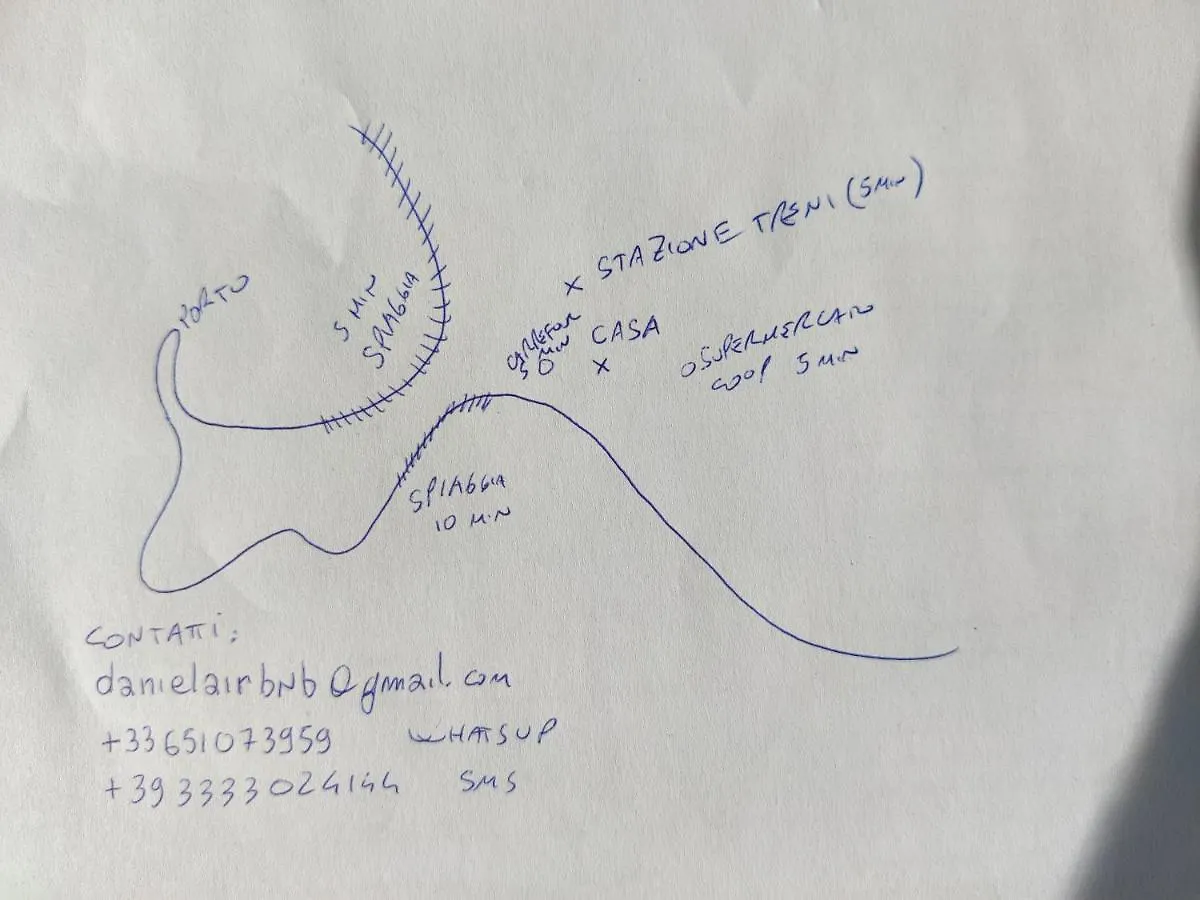 STAZIONE TRENI (5 MIN)
PORTO
5 MIN
SPIAGGIA
CARREFOUR
5 MIN
CASA
SUPERMERCATO
COOP 5 MIN
SPIAGGIA
10 MIN
CONTATTI:
danielairbnb@gmail.com
+33651073959 WHATSUP
+393333024144 SMS